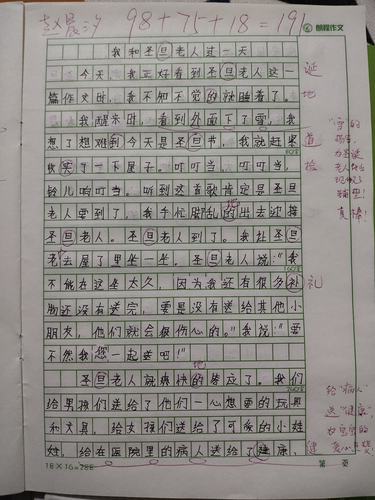 赵晨汐 98+75+18=191
朗程作文
我和圣旦老人过一天
今天，我正好看到圣旦老人这一
篇作文时，我不知不觉的就睡着了。
我醒来时，看到外面下了雪，我
想了想难到今天是圣旦节，我就赶紧
收实了一下屋子。叮叮当，叮叮当，
铃儿响叮当。听到这首歌肯定是圣旦
老人要到了，我手忙脚乱的出去迎接
地
圣旦老人。圣旦老人到了。我让圣旦
老去屋了里坐一坐，圣旦老人说："我
不能在这坐太久，因为我还有很多礼
物还没有送完，要是没有送给其他小
朋友，他们就会很伤心的。"我说："要
不然我您一起送吧！"
地
圣旦老人就爽快的答应了。我们
给男孩们送给了他们一心想要的玩具
和文具，给女孩们送给了可爱的小娃
娃，给在医院里的病人送给了健康，
18×16=288
第 页
诞
地
道
捡
礼
健
"雪"的
为圣诞
老人的
真棒！
给"病人"
送"健康"，